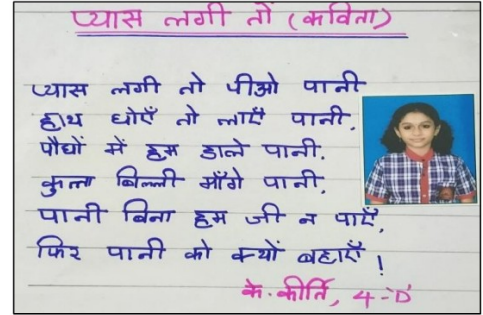 प्यास लगी तो (कविता)
प्यास लगी तो पीओ पानी
हाथ धोएँ तो लाएँ पानी,
पौधों में हम डाले पानी,
कुत्ता बिल्ली माँगे पानी,
पानी बिना हम जी न पाएँ,
फिर पानी को क्यों बहाएँ !
के. कीर्ति, 4-'D'